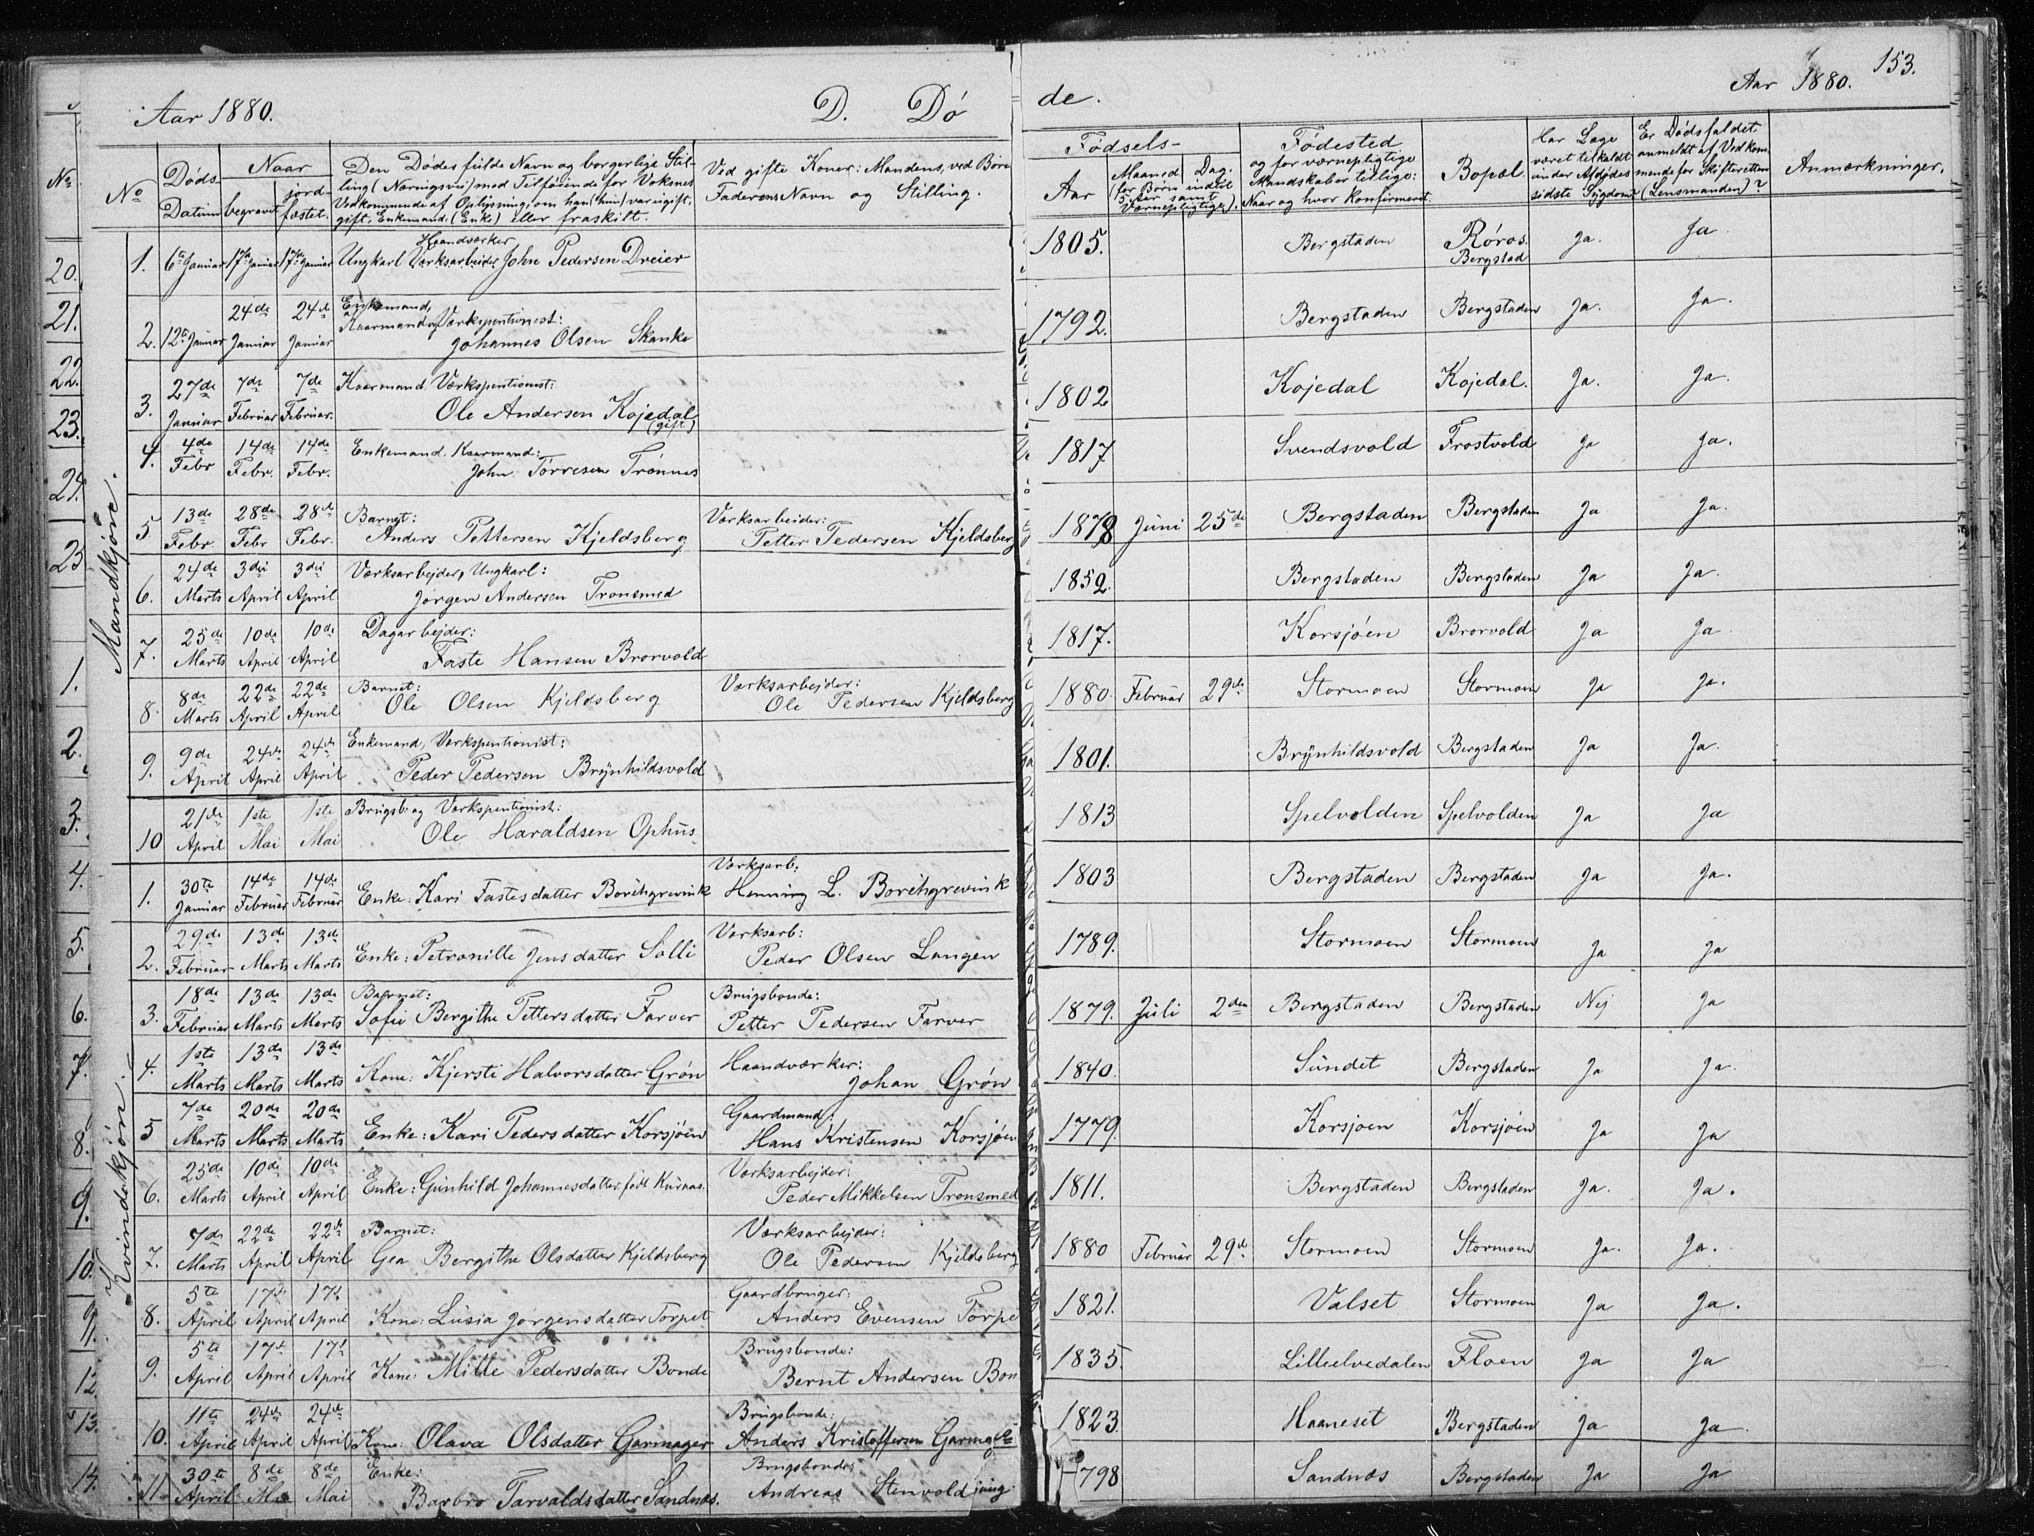 Aar 1880.
D. Dö
de.
Aar 1880.
153.
No
Döds-
Datum
Naar
begravet
jord-
fæstet.
Den Dödes fulde Navn og borgerlige Stil-
ling (Næringsvei) med Tilföiende for Voksnes
Vedkommende af Oplysning, om han (hun) var ugift,
gift, Enkemand (Enke) eller fraskilt.
Ved gifte Koner: Mandens, ved Börn
Faderens Navn og Stilling.
Födsels-
Aar
Maaned
Dag.
(for Börn indtil
5 Aar samt
Værnepligtige).
Födested
og for værnepligtige
Mandskaber tillige:
Naar og hvor konfirmeret.
Bopæl.
Har Læge
været tilkaldt
under Afdödes
sidste Sygdom?
Er Dödsfaldet
anmeldt af Vedkom-
mende for Skifteretten
(Lensmanden)?
Anmærkninger.
Mandkjön.
1. 6te Januar 17de Januar 17de Januar Ungkarl Haandværker Værksarbeider John Pedersen Dreier 1805. Bergstaden Röros Bergstad Ja. Ja
2. 12te Januar 24de Januar 24de Januar Enkemand, Kaarmand og Værkspentionist: Johannes Olsen Skanke 1792. Bergstaden Bergstaden Ja. Ja.
3. 27de Januar 7de Februar 7de Februar. Kaarmand Værkspentionist: Ole Andersen Kojedal (gift) 1802 Kojedal Kojedal. Ja. Ja.
4. 4de Febr 14de Febr. 14de Febr. Enkemand. Kaarmand: John Torresen Trönnes 1817 Svendsvold Frostvold Ja Ja.
5 13de Febr. 28de Febr 28de Febr. Barnet: Anders Pettersen Kjeldsberg Værksarbeider: Petter Pedersen Kjeldsberg 1878 Juni 25de Bergstaden Bergstaden Ja Ja.
6. 24de Marts 3die April 3die April Værksarbejder, Ungkarl: Jörgen Andersen Tronsmed 1852. Bergstaden Bergstaden Ja Ja.
7. 25de Marts 10de April 10de April Dagarbejder: Faste Hansen Brorvold 1817. Korsjöen Brorvold Ja Ja
8. 8de Marts 22de April 22de April Barnet: Ole Olsen Kjeldsberg Værksarbejder: Ole Pedersen Kjeldsberg 1880. Februar 29de Stormoen Stormoen Ja Ja.
9. 9de April 24de April 24de April Enkemand, Værkspentionist: Peder Pedersen Brynhildsvold 1801. Brynhildsvold Bergstaden Ja Ja.
10 21de April 1ste Mai 1ste Mai Brugsb. og Værkspentionist: Ole Haraldsen Ophus 1813 Spelvolden Spelvolden Ja Ja
Kvindekjön.
1. 30te Januar 14de Februar 14de Februar Enke: Kari Fastesdatter Borchgrevink Værksarb: Henning L. Borchgrevink 1803 Bergstaden Bergstaden Ja Ja.
2. 29de Februar 13de Marts 13de Marts Enke: Petronille Jensdatter Solli Værksarb: Peder Olsen Langen 1789. Stormoen Stormoen Ja Ja
3. 18de Februar 13de Marts 13de Marts Barnet: Sofie Bergithe Pettersdatter Farver Brugsbonde: Petter Pedersen Farver 1879. Juli 2den Bergstaden Bergstaden Nej Ja
4. 1ste Marts 13de Marts 13de Marts Kone: Kjersti Halvorsdatter Grön Haandværker: Johan Grön 1840. Sundet Bergstaden Ja Ja.
5 7de Marts 20de Marts 20de Marts Enke: Kari Pedersdatter Korsjöen Gaardmand: Hans Kristensen Korsjöen 1779. Korsjoen Korsjöen Ja Ja
6. 25de Marts 10de April 10de April Enke: Gunhild Johannesdatter, född Kurnas. Værksarbejder: Peder Mikkelsen Tronsmed 1811. Bergstaden Bergstaden Ja. Ja.
7. 7de Marts 22de April 22de April Barnet: Gea Bergithe Olsdatter Kjeldsberg Værksarbejder: Ole Pedersen Kjeldsberg 1880 Februar 29de Stormoen Stormoen Ja. Ja.
8. 5te April 17de April 17de April Kone: Lusia Jörgensdatter Torpet Gaardbruger: Anders Evensen Torpe 1821. Valset Stormoen Ja Ja.
9. 5te April 17de April 17de April Kone: Mille Pedersdatter Bonde Brugsbonde: Bernt Andersen Bon 1835. Lilleelvedalen Floen Ja Ja
10. 11te April 24de April 24de April Kone: Olava Olsdatter Garmager Brugsbonde: Anders Kristoffersen Garmage 1823 Haaneset Bergstaden Ja Ja
11 30te April 8de Ma 8de Mai Enke: Barbro Tarvaldsdatter Sandnæs. Brugsbonde: Andreas Stenvold 1798 Sandnæs Bergstaden Ja Ja
No
20.
21.
22.
23.
24.
25
1.
2.
3.
4.
5.
6.
7.
8.
9.
10.
11.
12
13.
14.